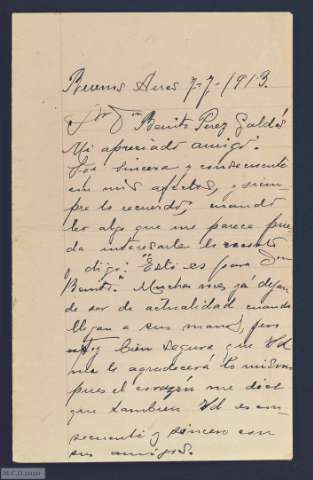 Buenos Aires 7-7-1913.
Sr Dn Benito Perez Galdós
Mi apreciado amigo:
Soy sincera y consecuente
en mis afectos, y siem
pre lo recuerdo; cuando
leo algo que me parece pue
da interesarle lo recorto
y digo: "Esto es para Don
Benito." Muchas veces ya dejan
de ser de actualidad cuando
llegan a sus manos, pero
estoy bien segura que Vd
me lo agradecerá lo mismo
pues el corazón me dice
que tambien Vd es con
secuente y sincero con
sus amigos.